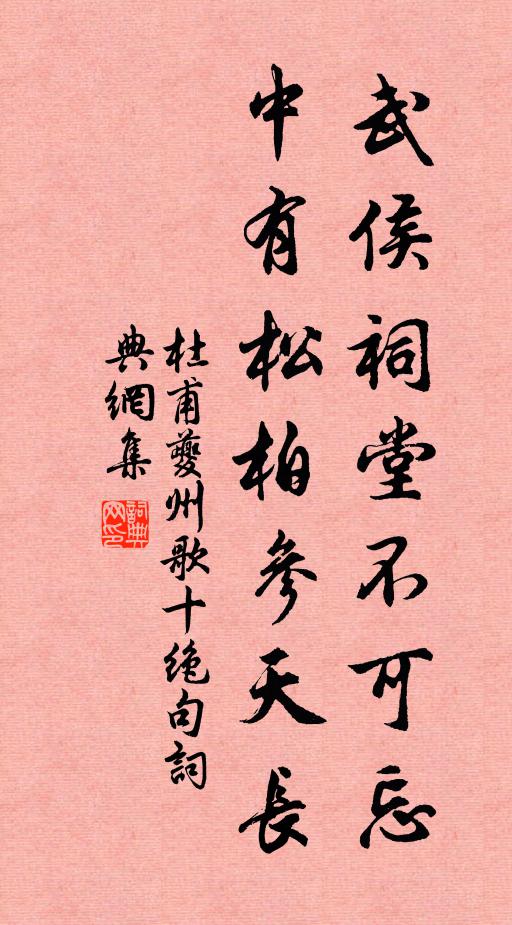 武侯祠堂不可忘
中有松柏參天長
杜甫夔州歌十絕句詞
典網集
詞典網印